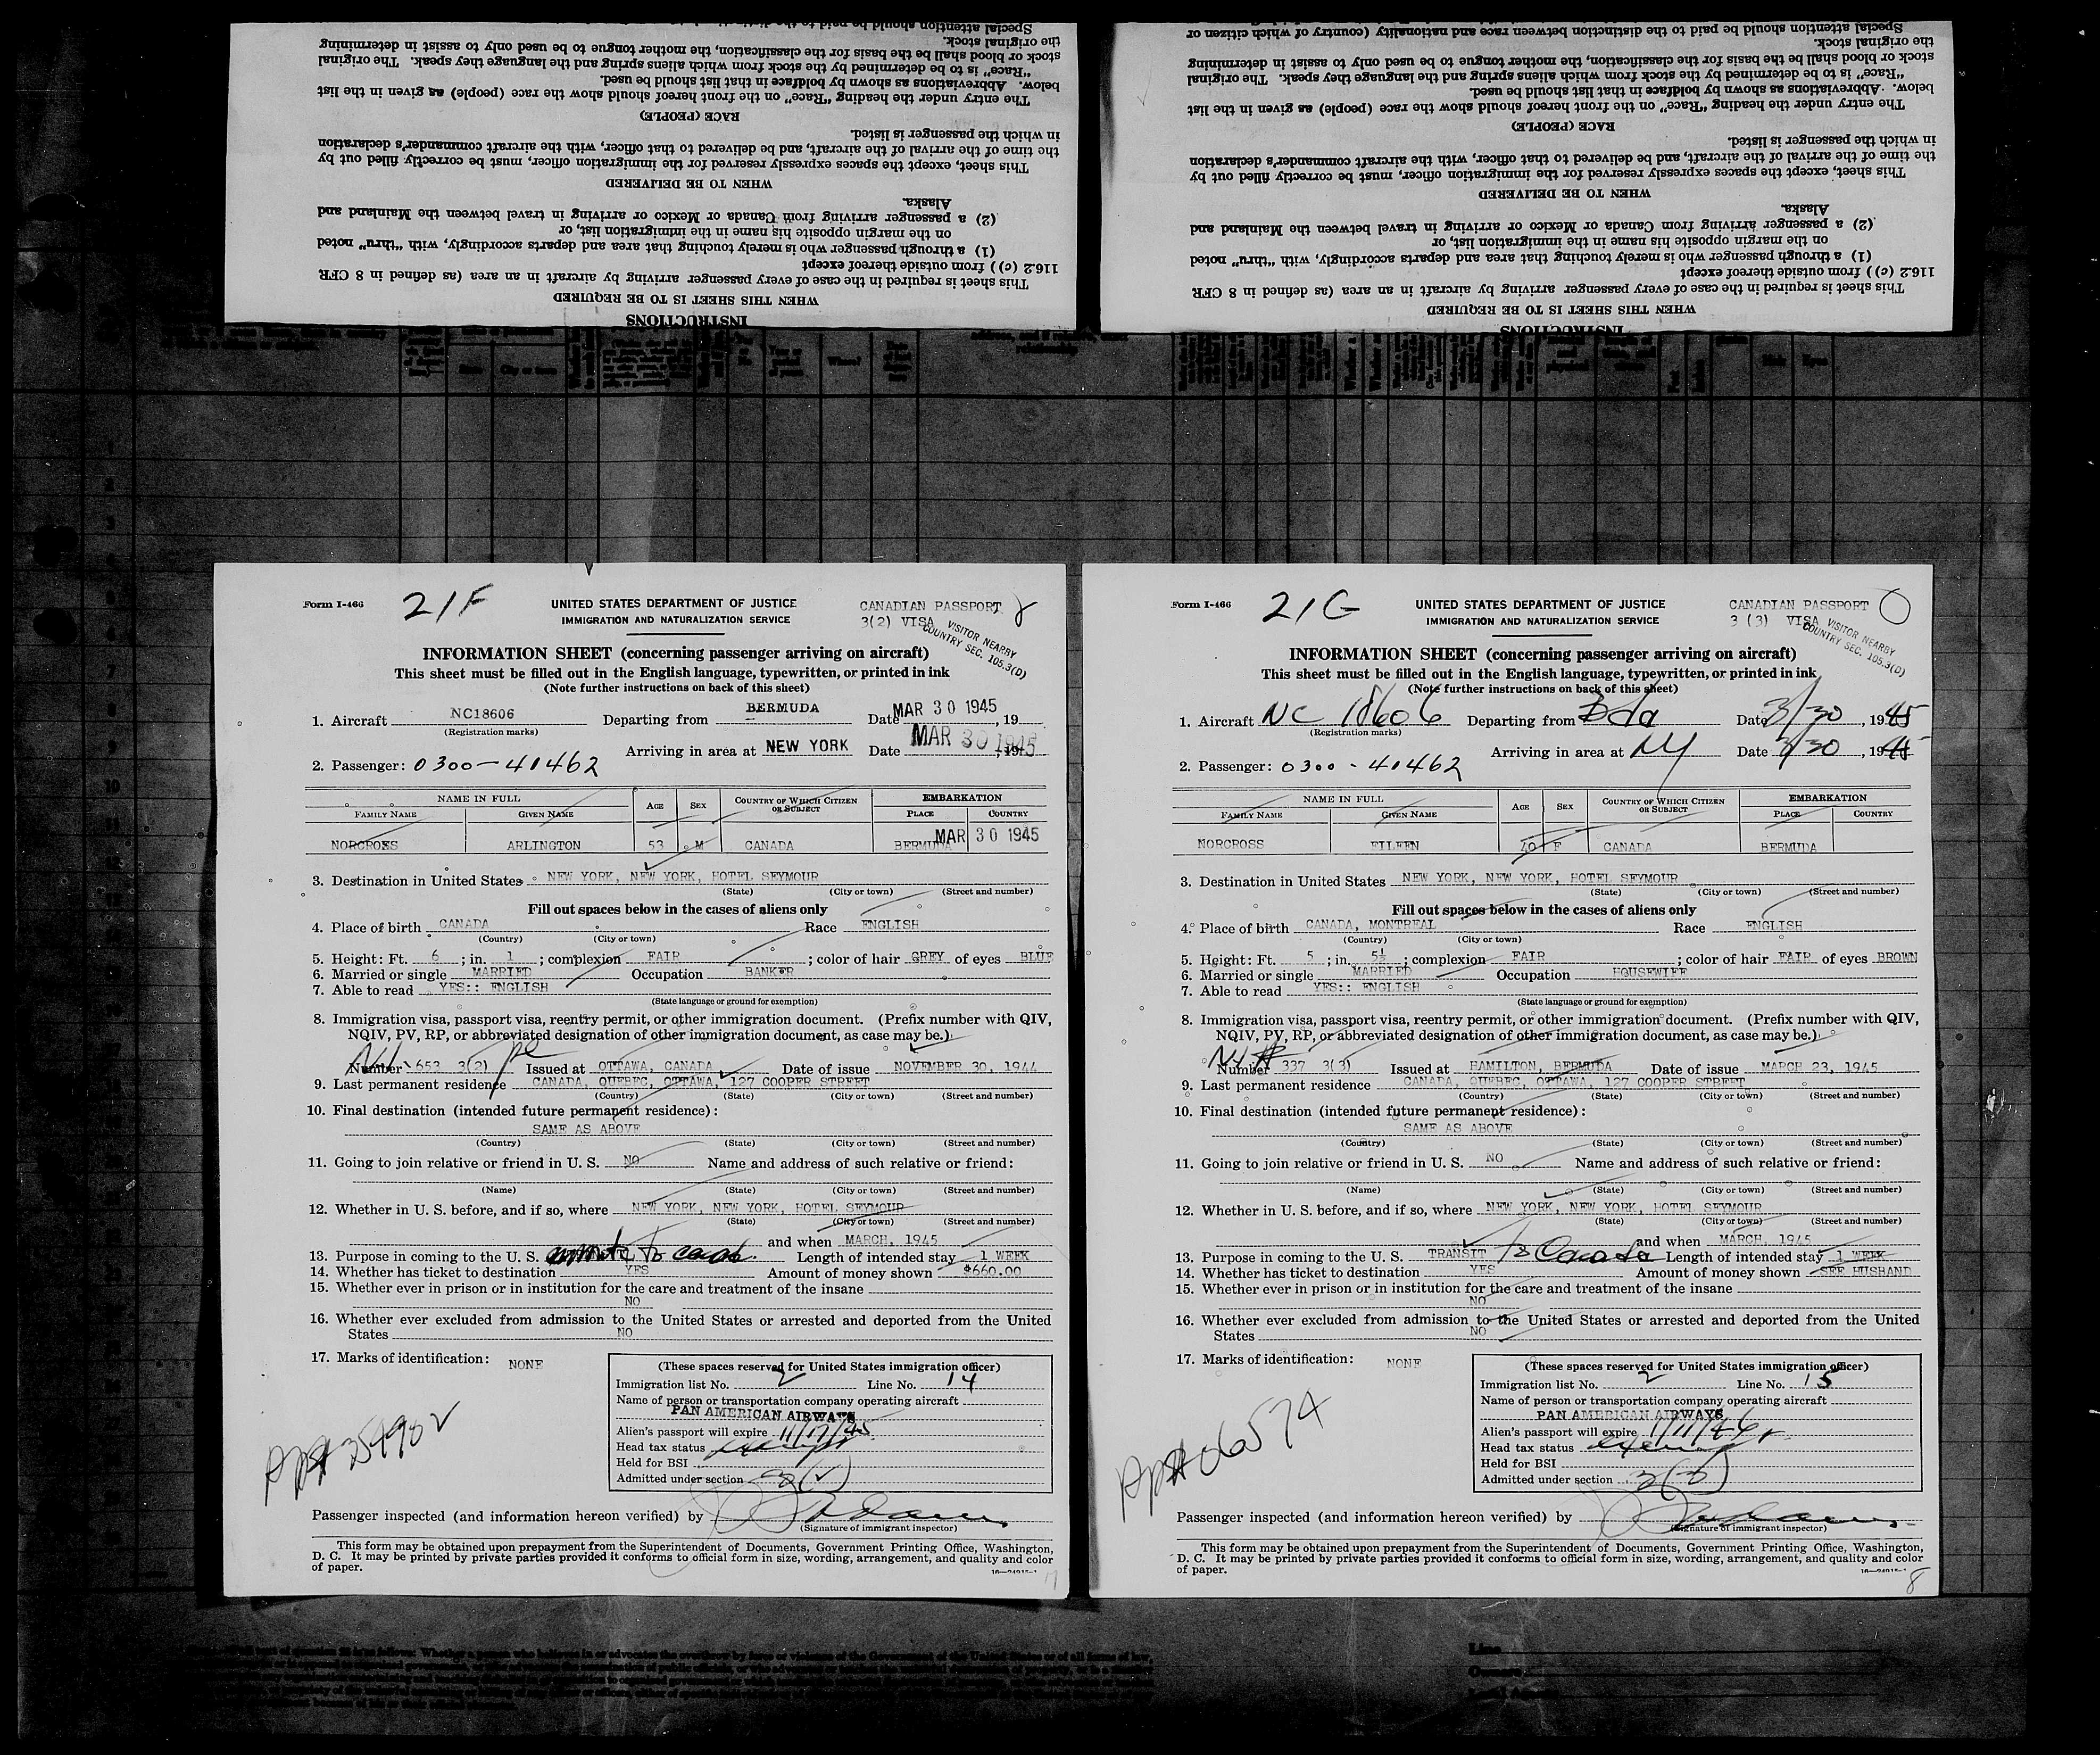 INSTRUCTIONS
WHEN THIS SHEET IS TO BE REQUIRED
This sheet is required in the case of every passenger arriving by aircraft in an area (as defined in 8 CFR
116.2 (c)) from outside thereof except
(1) a through passenger who is merely touching that area and departs accordingly, with "thru" noted
on the margin opposite his name in the immigration list, or
(2) a passenger arriving from Canada or Mexico or arriving in travel between the Mainland and
Alaska.
WHEN TO BE DELIVERED
This sheet, except the spaces expressly reserved for the immigration officer, must be correctly filled out by
the time of the arrival of the aircraft, and be delivered to that officer, with the aircraft commander's declaration
in which the passenger is listed.
RACE (PEOPLE)
The entry under the heading "Race" on the front hereof should show the race (people) as given in the list
below. Abbreviations as shown by boldface in that list should be used.
"Race" is to be determined by the stock from which aliens spring and the language they speak. The original
stock or blood shall be the basis for the classification, the mother tongue to be used only to assist in determining
the original stock.
Special attention should be paid to the distinction between
INSTRUCTIONS
WHEN THIS SHEET IS TO BE REQUIRED
This sheet is required in the case of every passenger arriving by aircraft in an area (as defined in 8 CFR
116.2 (c)) from outside thereof except
(1) a through passenger who is merely touching that area and departs accordingly, with "thru" noted
on the margin opposite his name in the immigration list, or
(2) a passenger arriving from Canada or Mexico or arriving in travel between the Mainland and
Alaska.
WHEN TO BE DELIVERED
This sheet, except the spaces expressly reserved for the immigration officer, must be correctly filled out by
the time of the arrival of the aircraft, and be delivered to that officer, with the aircraft commander's declaration
in which the passenger is listed.
RACE (PEOPLE)
The entry under the heading "Race" on the front hereof should show the race (people) as given in the list
below. Abbreviations as shown by boldface in that list should be used.
"Race" is to be determined by the stock from which aliens spring and the language they speak. The original
stock or blood shall be the basis for the classification, the mother tongue to be used only to assist in determining
the original stock.
Special attention should be paid to the distinction between race and nationality (country of which citizen or
Form I-466
21F
UNITED STATES DEPARTMENT OF JUSTICE
IMMIGRATION AND NATURALIZATION SERVICE
CANADIAN PASSPORT
3(2) VISA
VISITOR NEARBY
COUNTRY SEC. 105.3(D)
INFORMATION SHEET (concerning passenger arriving on aircraft)
This sheet must be filled out in the English language, typewritten, or printed in ink
(Note further instructions on back of this sheet)
1. Aircraft NC18606 Departing from BERMUDA Date MAR 30 1945, 19
(Registration marks)
Arriving in area at NEW YORK Date MAR 30 1945
2. Passenger: 0300-41462
NAME IN FULL AGE SEX COUNTRY OF WHICH CITIZEN OR SUBJECT EMBARKATION
FAMILY NAME GIVEN NAME PLACE COUNTRY
NORCROSS ARLINGTON 53 M CANADA BERMUDA MAR 30 1945
3. Destination in United States NEW YORK, NEW YORK, HOTEL SEYMOUR
(State) (City or town) (Street and number)
Fill out spaces below in the cases of aliens only
4. Place of birth CANADA Race ENGLISH
(Country) (City or town)
5. Height: Ft. 6 ; in. 1 ; complexion FAIR ; color of hair GREY of eyes BLUE
6. Married or single MARRIED Occupation BANKER
7. Able to read YES:: ENGLISH
(State language or ground for exemption)
8. Immigration visa, passport visa, reentry permit, or other immigration document. (Prefix number with QIV,
NQIV, PV, RP, or abbreviated designation of other immigration document, as case may be.)
Number 653 3(2) Issued at OTTAWA, CANADA Date of issue NOVEMBER 30, 1944
9. Last permanent residence CANADA, QUEBEC, OTTAWA, 127 COOPER STREET
(Country) (State) (City or town) (Street and number)
10. Final destination (intended future permanent residence):
SAME AS ABOVE
(Country) (State) (City or town) (Street and number)
11. Going to join relative or friend in U. S. NO Name and address of such relative or friend:
(Name) (State) (City or town) (Street and number)
12. Whether in U. S. before, and if so, where NEW YORK, NEW YORK, HOTEL SEYMOUR
(State) (City or town) (Street and number)
and when MARCH, 1945
13. Purpose in coming to the U. S. to Canada Length of intended stay 1 WEEK
14. Whether has ticket to destination YES Amount of money shown $660.00
15. Whether ever in prison or in institution for the care and treatment of the insane
NO
16. Whether ever excluded from admission to the United States or arrested and deported from the United
States NO
17. Marks of identification: NONE
(These spaces reserved for United States immigration officer)
Immigration list No. 2 Line No. 14
Name of person or transportation company operating aircraft
PAN AMERICAN AIRWAYS
Alien's passport will expire 11/17/45
Head tax status exempt
Held for BSI
Admitted under section 3(2)
Passenger inspected (and information hereon verified) by
(Signature of immigrant inspector)
This form may be obtained upon prepayment from the Superintendent of Documents, Government Printing Office, Washington,
D. C. It may be printed by private parties provided it conforms to official form in size, wording, arrangement, and quality and color
of paper.
Form I-466
21G
UNITED STATES DEPARTMENT OF JUSTICE
IMMIGRATION AND NATURALIZATION SERVICE
CANADIAN PASSPORT
3 (3) VISA
VISITOR NEARBY
COUNTRY SEC. 105.3(D)
INFORMATION SHEET (concerning passenger arriving on aircraft)
This sheet must be filled out in the English language, typewritten, or printed in ink
(Note further instructions on back of this sheet)
1. Aircraft NC 18606 Departing from Bda Date 3/30, 1945
(Registration marks)
Arriving in area at NY Date 3/30, 1945
2. Passenger: 0300-41462
NAME IN FULL AGE SEX COUNTRY OF WHICH CITIZEN OR SUBJECT EMBARKATION
FAMILY NAME GIVEN NAME PLACE COUNTRY
NORCROSS EILEEN 40 F CANADA BERMUDA
3. Destination in United States NEW YORK, NEW YORK, HOTEL SEYMOUR
(State) (City or town) (Street and number)
Fill out spaces below in the cases of aliens only
4. Place of birth CANADA, MONTREAL Race ENGLISH
(Country) (City or town)
5. Height: Ft. 5 ; in. 5½ ; complexion FAIR ; color of hair FAIR of eyes BROWN
6. Married or single MARRIED Occupation HOUSEWIFE
7. Able to read YES:: ENGLISH
(State language or ground for exemption)
8. Immigration visa, passport visa, reentry permit, or other immigration document. (Prefix number with QIV,
NQIV, PV, RP, or abbreviated designation of other immigration document, as case may be.)
Number 337 3(3) Issued at HAMILTON, BERMUDA Date of issue MARCH 23, 1945
9. Last permanent residence CANADA, QUEBEC, OTTAWA, 127 COOPER STREET
(Country) (State) (City or town) (Street and number)
10. Final destination (intended future permanent residence):
SAME AS ABOVE
(Country) (State) (City or town) (Street and number)
11. Going to join relative or friend in U. S. NO Name and address of such relative or friend:
(Name) (State) (City or town) (Street and number)
12. Whether in U. S. before, and if so, where NEW YORK, NEW YORK, HOTEL SEYMOUR
(State) (City or town) (Street and number)
and when MARCH, 1945
13. Purpose in coming to the U. S. TRANSIT to Canada Length of intended stay 1 WEEK
14. Whether has ticket to destination YES Amount of money shown SEE HUSBAND
15. Whether ever in prison or in institution for the care and treatment of the insane
NO
16. Whether ever excluded from admission to the United States or arrested and deported from the United
States NO
17. Marks of identification: NONE
(These spaces reserved for United States immigration officer)
Immigration list No. 2 Line No. 15
Name of person or transportation company operating aircraft
PAN AMERICAN AIRWAYS
Alien's passport will expire
Head tax status exempt
Held for BSI
Admitted under section 3(3)
Passenger inspected (and information hereon verified) by
(Signature of immigrant inspector)
This form may be obtained upon prepayment from the Superintendent of Documents, Government Printing Office, Washington,
D. C. It may be printed by private parties provided it conforms to official form in size, wording, arrangement, and quality and color
of paper.
8